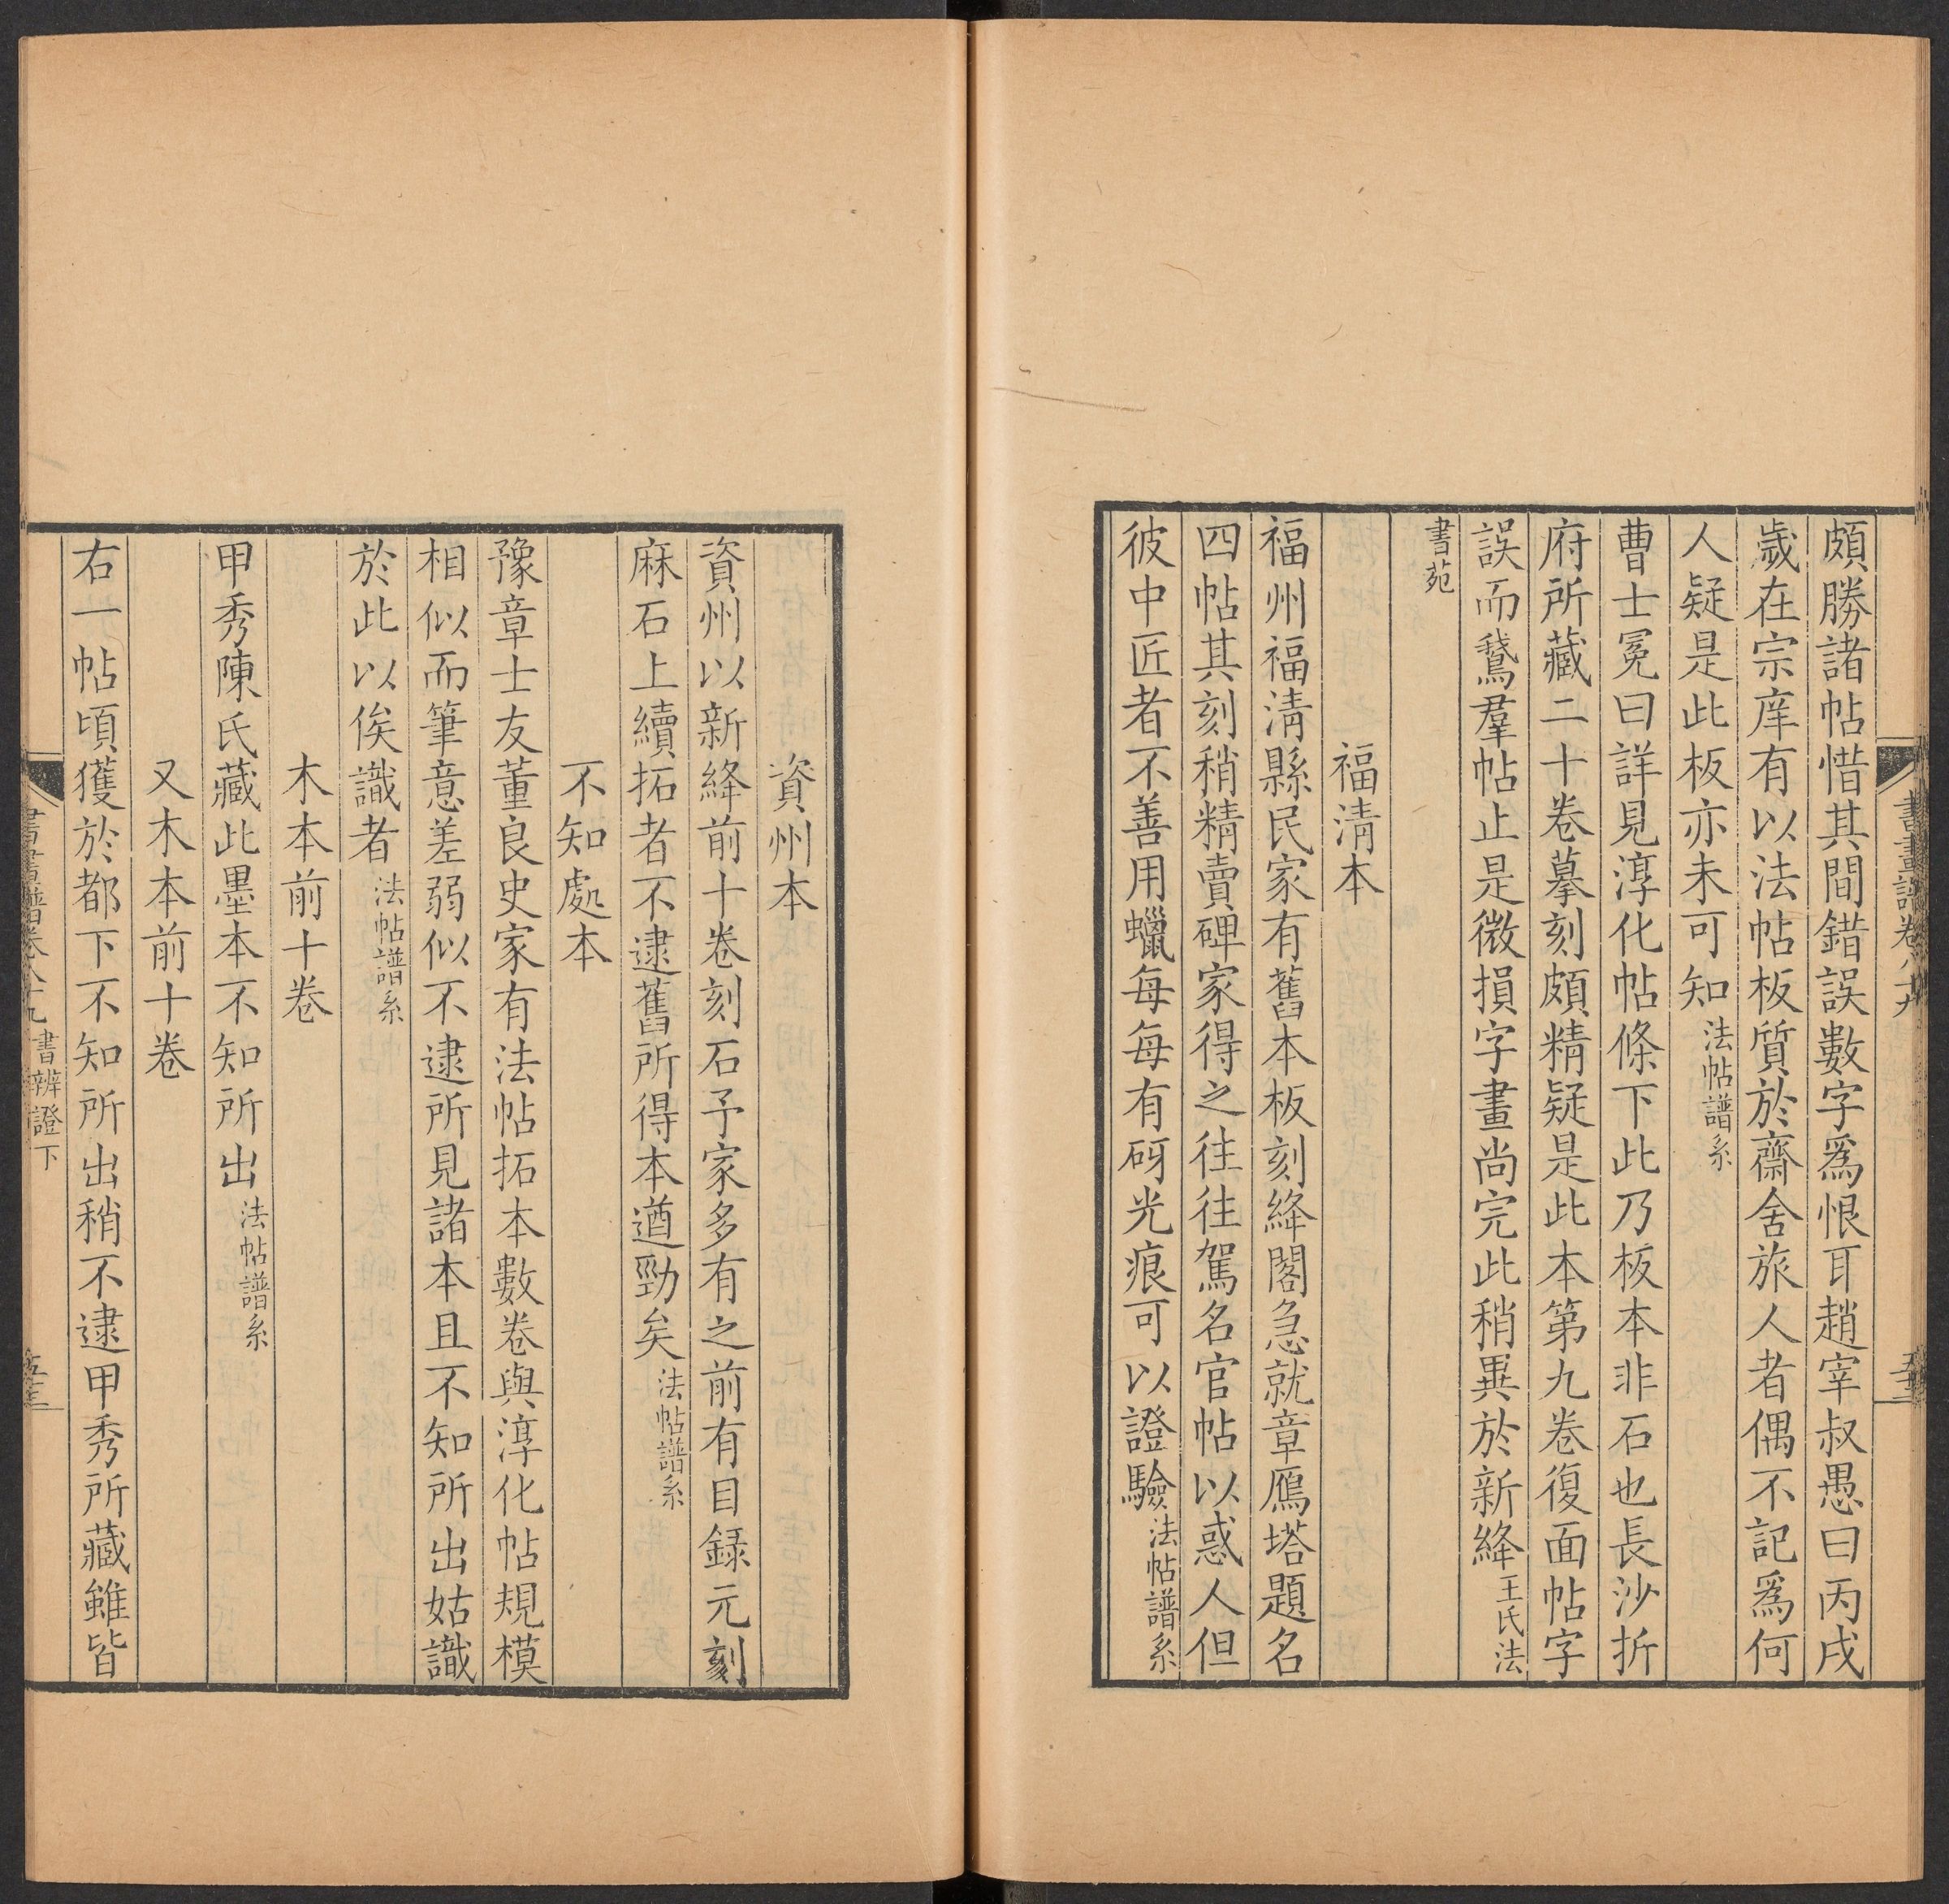 頗勝諸帖惜其間錯誤數字爲恨耳趙宰叔愚曰丙戌
歲在宗庠有以法帖板質於齋舍旅人者偶不記爲何
人疑是此板亦未可知法帖譜系
曹士冕曰詳見淳化帖條下此乃板本非石也長沙折
府所藏二十卷摹刻頗精疑是此本第九卷復面帖字
誤而鵞羣帖止是微損字畫尚完此稍異於新絳王氏法
書苑
福淸本
福州福淸縣民家有舊本板刻絳閣急就章鴈塔題名
四帖其刻稍精賣碑家得之往往駕名官帖以惑人但
彼中匠者不善用蠟每每有砑光痕可以證驗法帖譜系
資州本
資州以新絳前十卷刻石予家多有之前有目録元刻
麻石上續拓者不逮舊所得本遒勁矣法帖譜系
不知處本
豫章士友董良史家有法帖拓本數卷與淳化帖規模
相似而筆意差弱似不逮所見諸本且不知所出姑識
於此以俟識者法帖譜系
木本前十卷
甲秀陳氏藏此墨本不知所出法帖譜系
又木本前十卷
右一帖頃獲於都下不知所出稍不逮甲秀所藏雖皆
書畫譜卷八十九 書辨證下